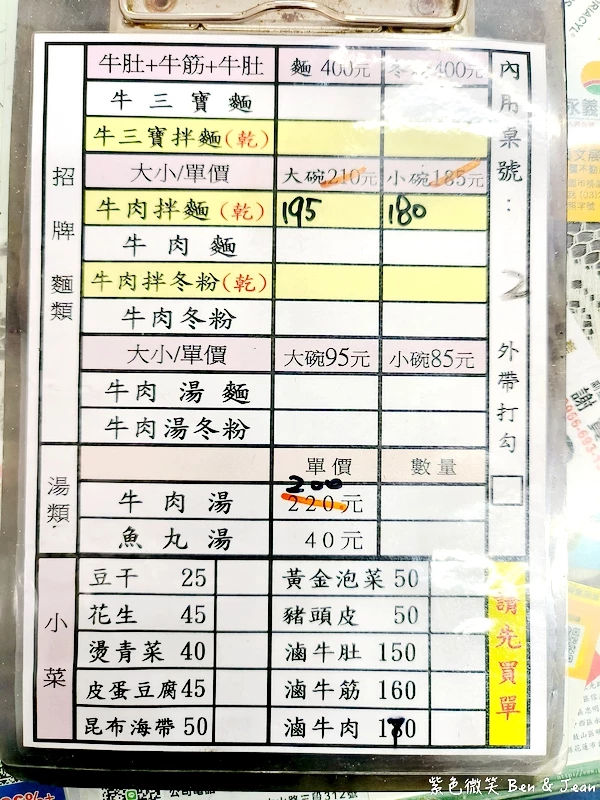 牛肚+牛筋+牛肚 麵 400元 400元
牛三寶麵
牛三寶拌麵(乾)
招牌麵類
大小/單價 大碗210元 小碗185元
牛肉拌麵(乾) 195 180
牛肉麵
牛肉拌冬粉(乾)
牛肉冬粉
大小/單價 大碗95元 小碗85元
牛肉湯麵
牛肉湯冬粉
湯類
單價 數量
200
牛肉湯 220元
魚丸湯 40元
小菜
豆干 25 黃金泡菜 50
花生 45 豬頭皮 50
燙青菜 40 滷牛肚 150
皮蛋豆腐 45 滷牛筋 160
昆布海帶 50 滷牛肉
內用桌號:
2
外帶打勾
請先買單
永義
紫色微笑 Ben & Jean